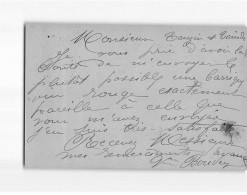 Monsieur Tougin &
Je vous prie d'avoir la
bonté de m'envoyer le
plutôt possible une barrique
vin rouge exactement
pareille à celle que
vous m'avez envoyée
j'en suis très satisfait
Recevez Messieurs
mes
Bouvier